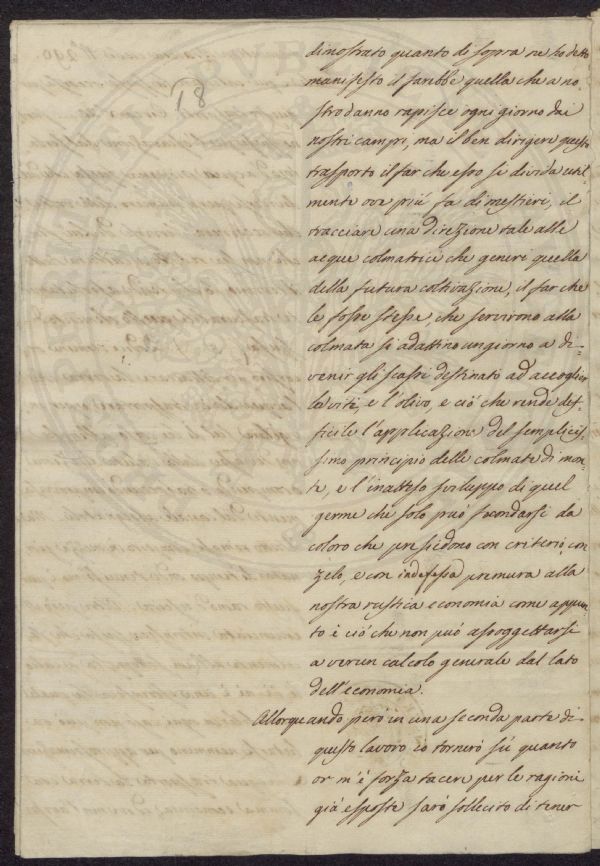 18
dimostrato quanto di sopra ne ho detto
manifesto il farebbe quella che a no-
stro danno rapisce ogni giorno dai
nostri campi, ma il ben dirigere questo
trasporto il far che esso si divida util-
mente ove più fa di mestieri, il
tracciare una direzione tale alle
acque colmatrici che generi quella
della futura coltivazione, il far che
le fosse stesse, che servirono alla
colmata si adattino un giorno a di-
venir gli scassi destinati ad accoglier
la vite, e l'olivo, e ciò che rende dif-
ficile l'applicazione del semplicis-
simo principio delle colmate di mon-
te, e l'inatteso sviluppo di quel
germe che solo può fecondarsi da
coloro che presiedono con criterio, con
zelo, e con indefessa premura alla
nostra rustica economia come appun-
to è ciò che non può assoggettarsi
a verun calcolo generale dal lato
dell'economia.
Allorquando però in una seconda parte di
questo lavoro io tornerò sù quanto
or m'é forza tacere per le ragioni
già esposte sarò sollecito di tener